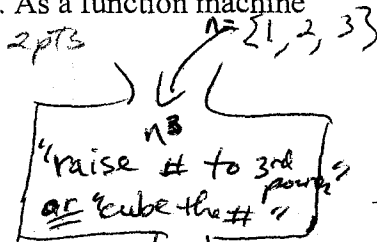 . As a function machine
2pts n = {1, 2, 3}
n³
"raise # to 3rd power"
or "cube the #"